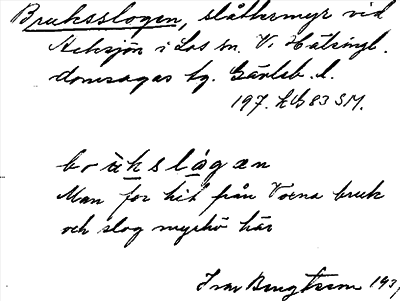 Bruksslogen, slåttermyr vid
Acksjön i Los sn. V. Hälsingl.
domsagas tg. Gävleb. l.
197. Kb 83 SM.
brùkslògæn
Man for hit från Voxna bruk
och slog myrhö här
Ivar Bengtsson 193